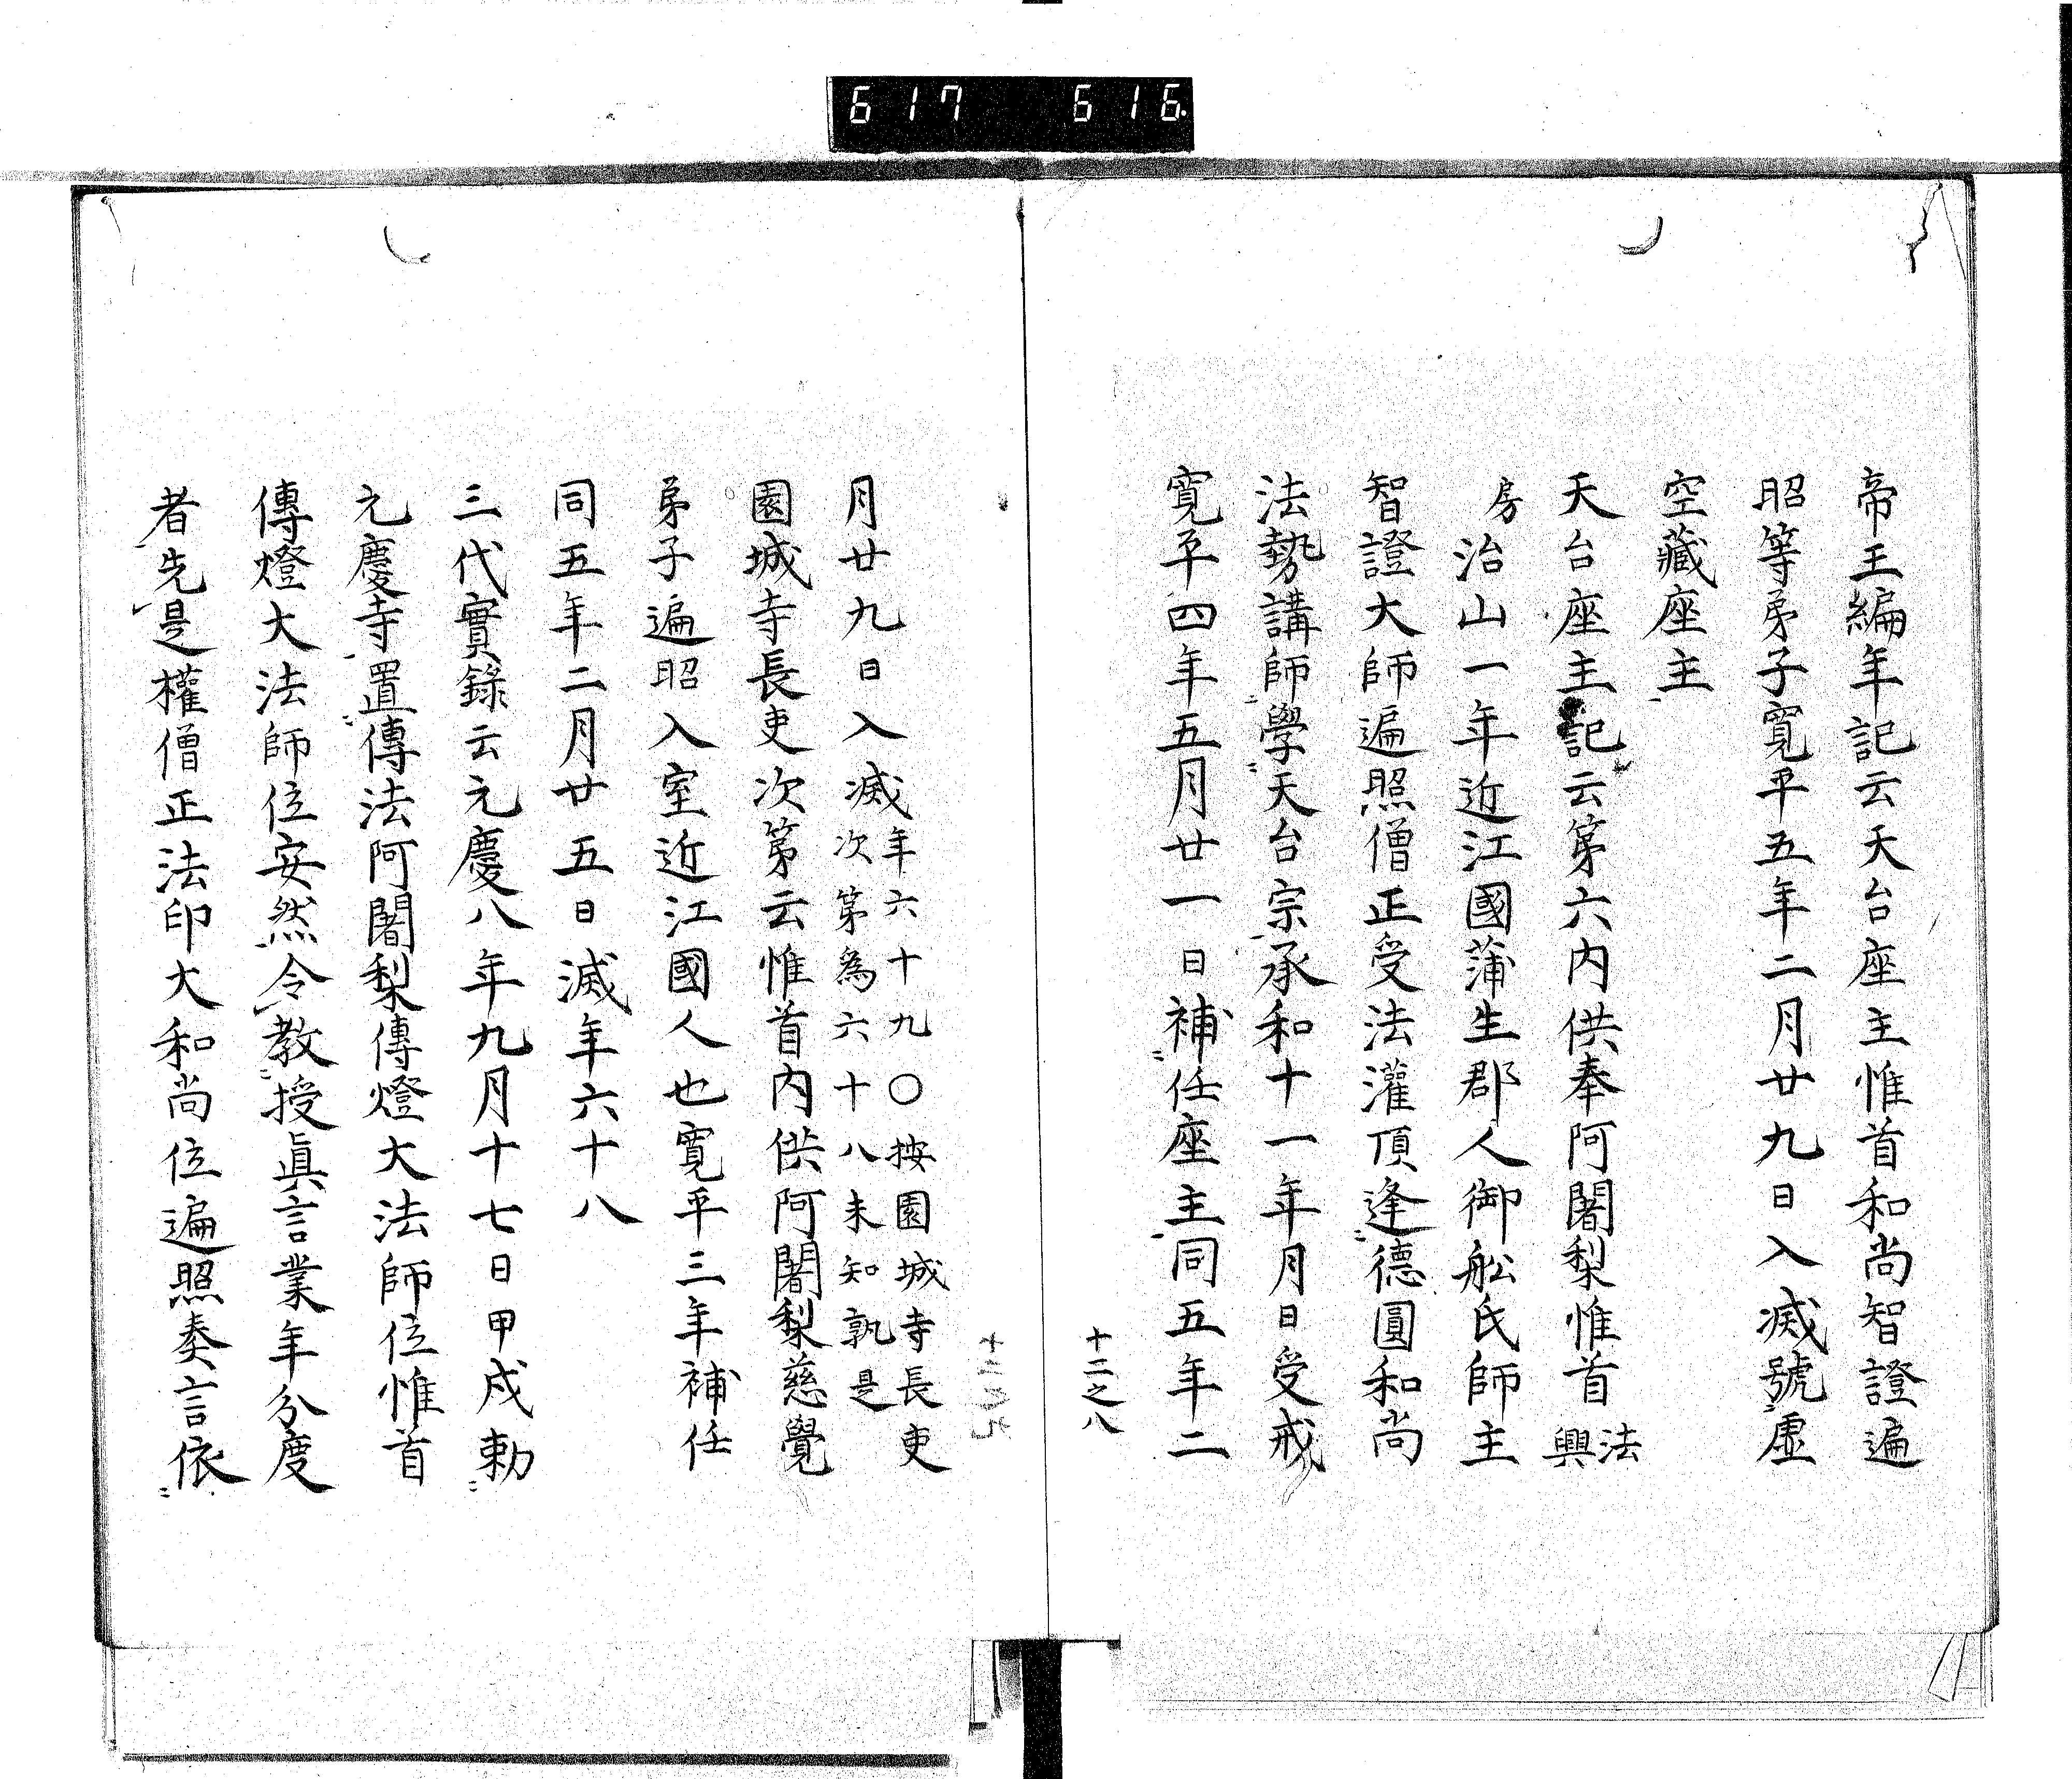 617 616
帝王編年記云天台座主惟首和尚智證遍
昭等弟子寛平五年二月廿九日入滅號虛
空藏座主
天台座主記云第六内供奉阿闍梨惟首法興
房治山一年近江國蒲生郡人御舩氏師主
智證大師遍照僧正受法灌頂逢德圓和尚
法勢講師學天台宗承和十一年月日受戒
寛平四年五月廿一日補任座主同五年二
十二之八
月廿九日入滅年六十九〇按園城寺長吏
次第為六十八未知孰是
園城寺長吏次第云惟首内供阿闍梨慈覺
弟子遍昭入室近江國人也寛平三年補任
同五年二月廿五日滅年六十八
三代實錄云元慶八年九月十七日甲戌勅
元慶寺置傳法阿闍梨傳燈大法師位惟首
傳燈大法師位安然令教授眞言業年分度
者先是權僧正法印大和尚位遍照奏言依